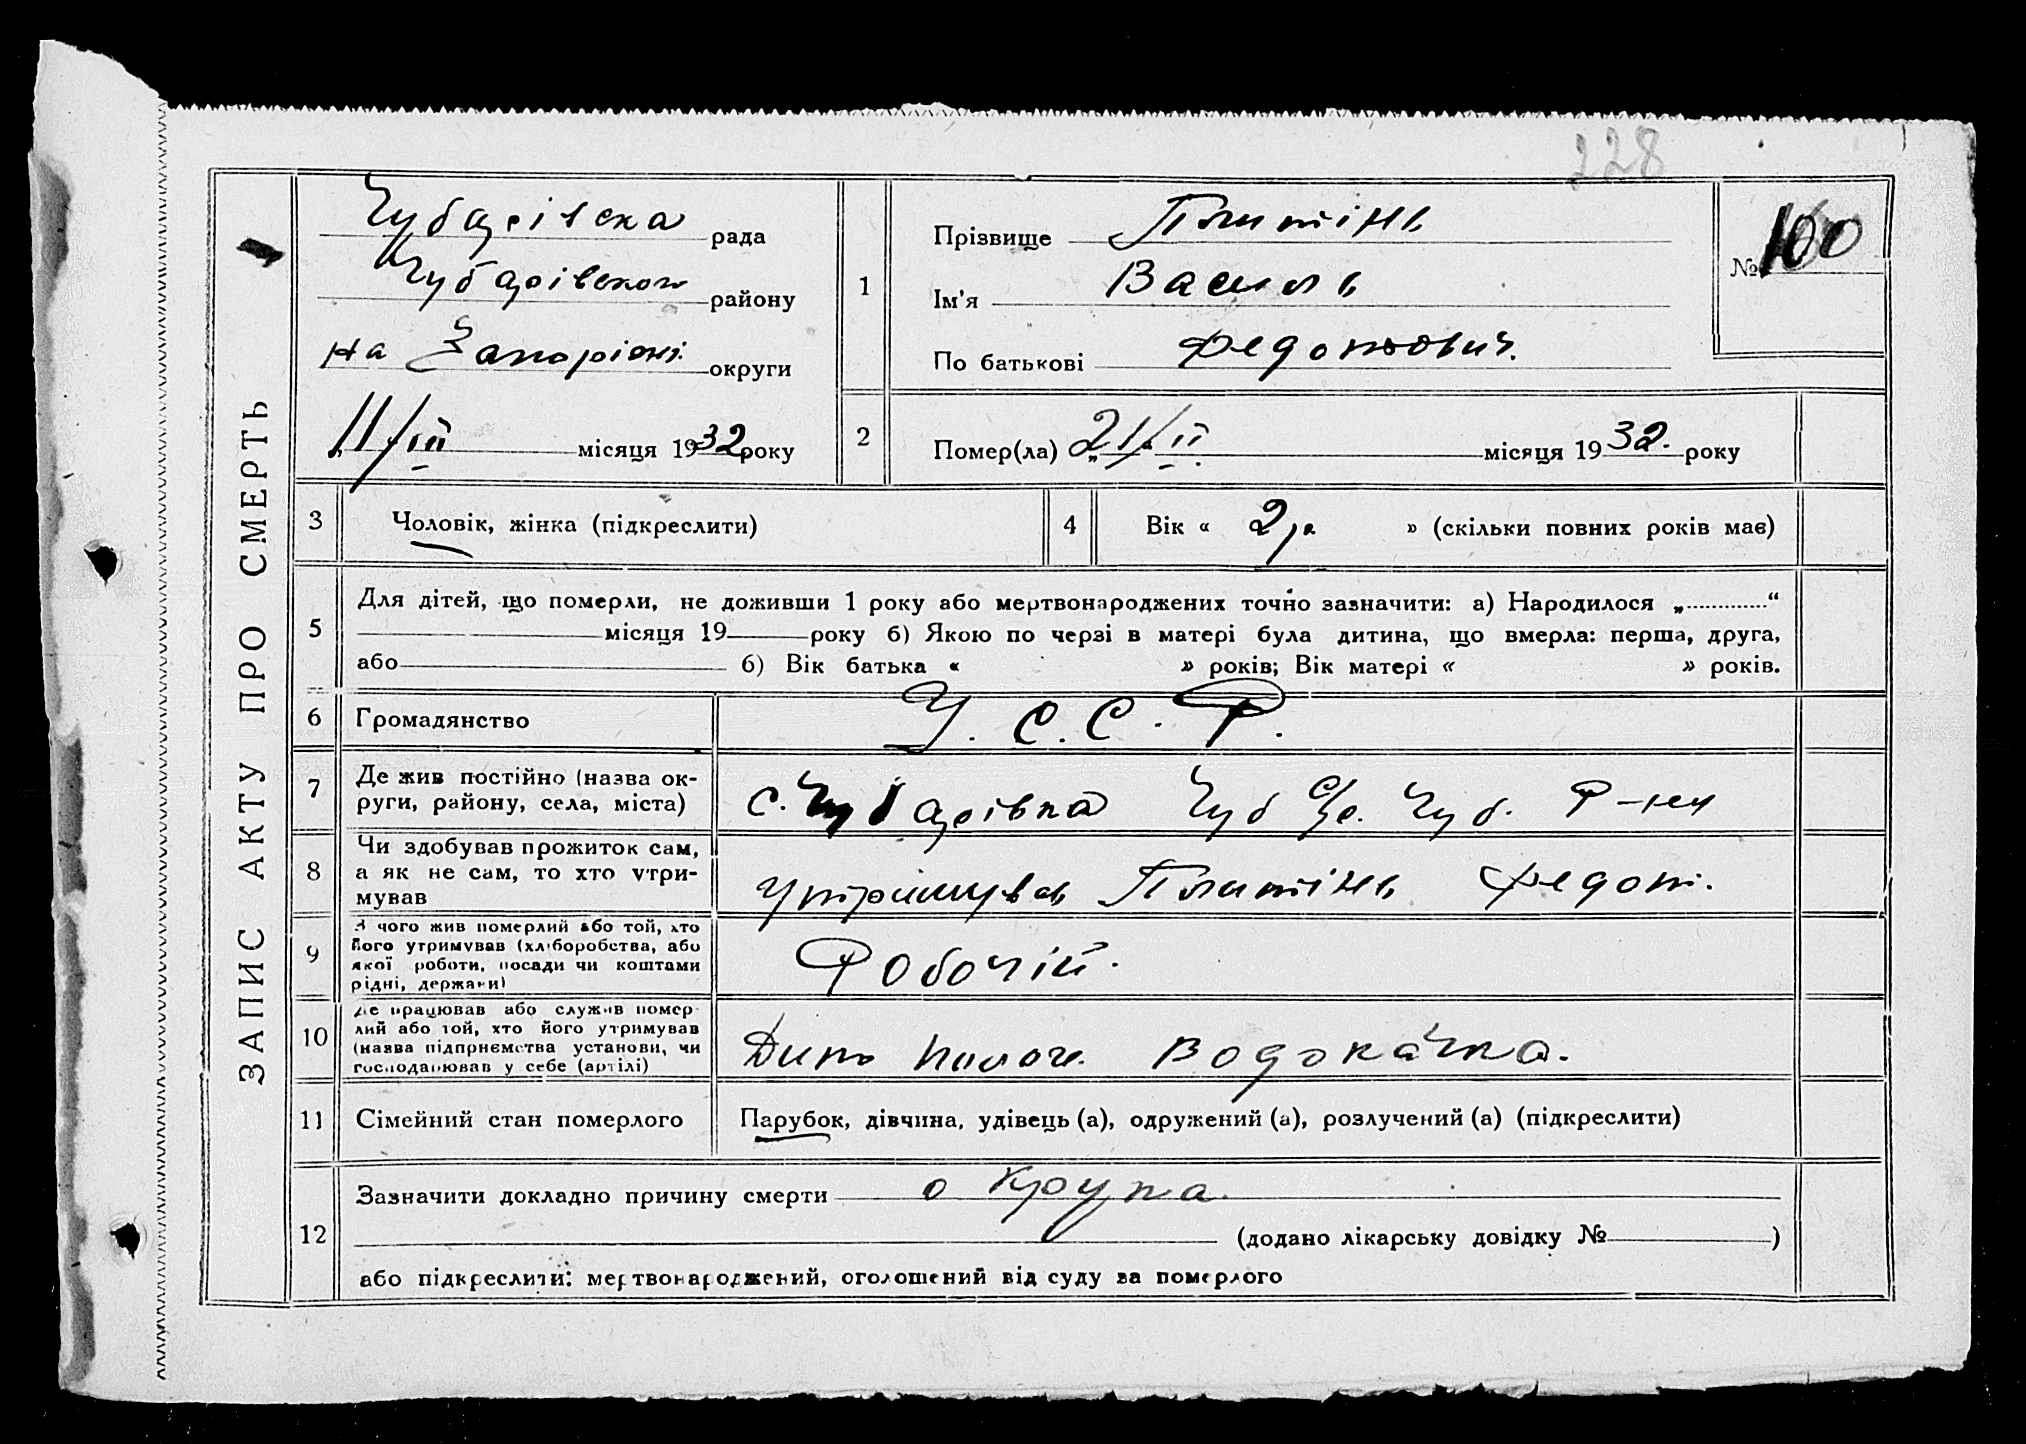 228
ЗАПИС АКТУ ПРО СМЕРТЬ
Чубарівска рада
Чубарівског району
на Запоріжі округи
11/III місяця 1932 року
1
Прізвище Плитінь
Ім'я Василь
По батькові Федотович.
№ 100
2
Помер(ла) „21/II місяця 1932. року
3
Чоловік, жінка (підкреслити)
4
Вік « 2 р. » (скільки повних років має)
5
Для дітей, що померли, не доживши 1 року або мертвонароджених точно зазначити: а) Народилося „.............“
місяця 19 року б) Якою по черзі в матері була дитина, що вмерла: перша, друга,
або б) Вік батька « » років; Вік матері « » років.
6
Громадянство У. С. С. Р.
7
Де жив постійно (назва ок-
руги, району, села, міста)
с. Чубарівка Чуб с/р. Чуб. Р-ну
8
Чи здобував прожиток сам,
а як не сам, то хто утри-
мував
утримував Плитінь Федот.
9
З чого жив померлий або той, хто
його утримував (хліборобства, або
якої роботи, посади чи коштами
рідні, держави)
Робочій.
10
Де працював або служив помер-
лий або той, хто його утримував
(назва підприємства установи, чи
господарював у себе (артілі)
Водокачка.
11
Сімейний стан померлого
Парубок, дівчина, удівець (а), одружений (а), розлучений (а) (підкреслити)
12
Зазначити докладно причину смерти о Крупа.
(додано лікарську довідку № )
або підкреслити: мертвонароджений, оголошений від суду за померлого